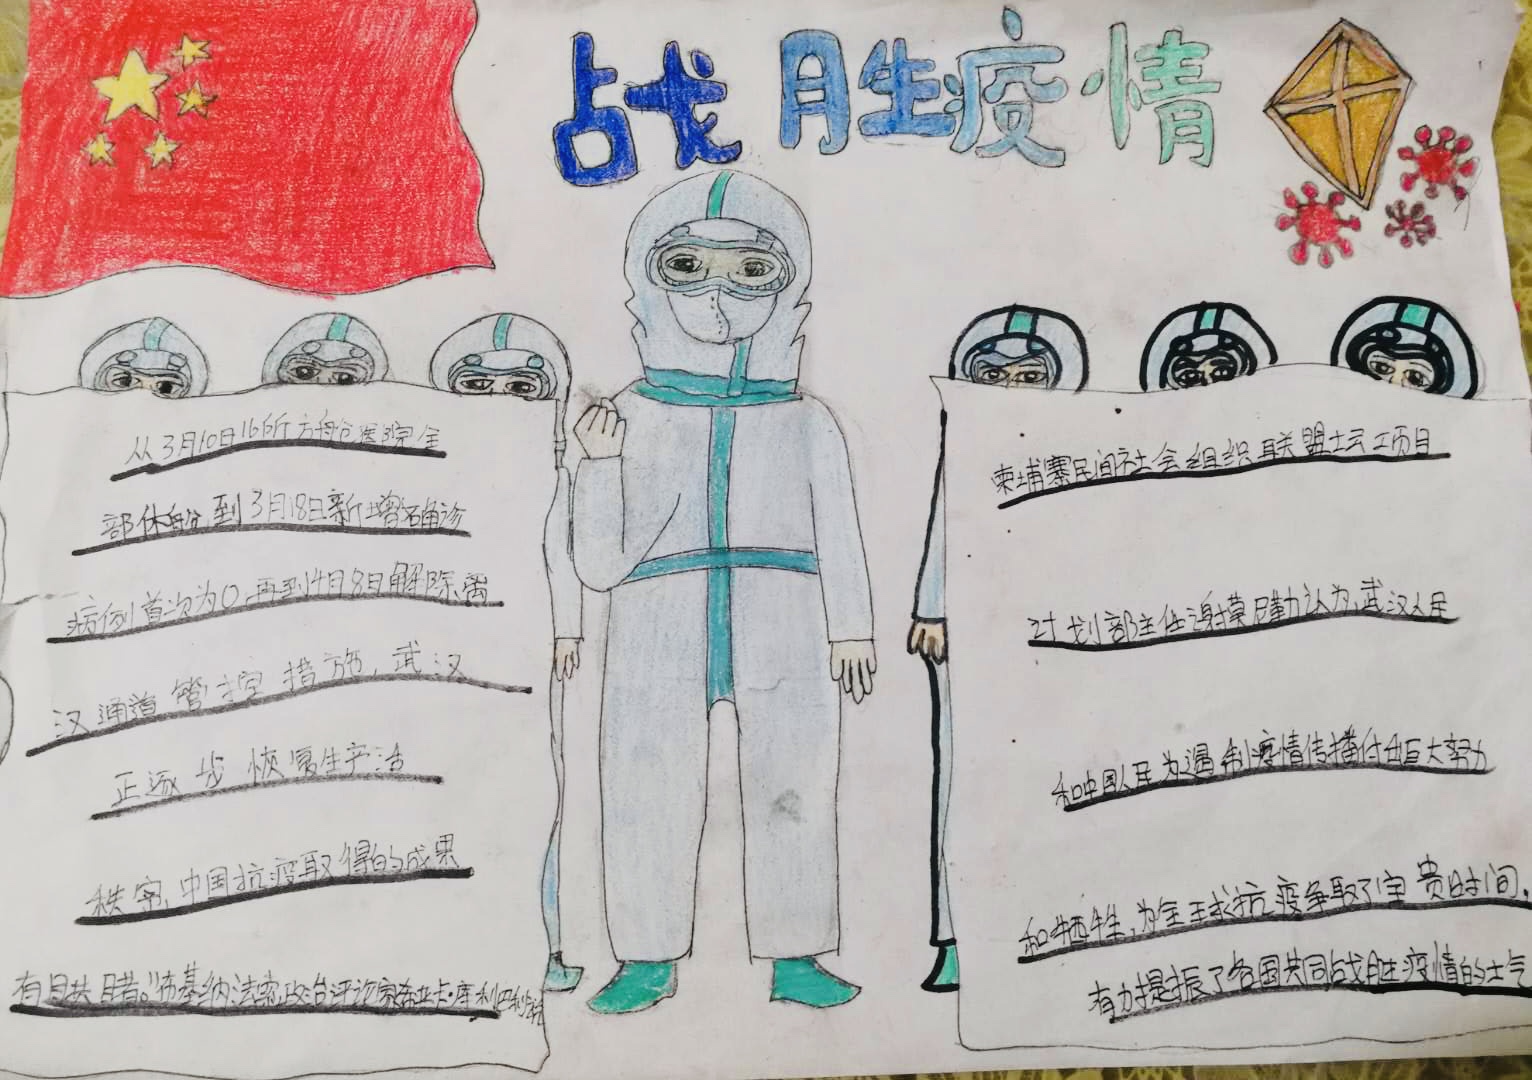 战胜疫情
从3月10日16所方舟仓医院全
部休舱到3月18日新增确诊
病例首次为0,再到4月8日解除离
汉通道管控措施,武汉
正逐步恢复生产活
秩序,中国抗疫取得的成果
有目共睹。"布基纳法索政治评论家
柬埔寨民间社会组织联盟坛工项目
计划部主任谢莫尼勒认为,武汉人民
和中国人民为遏制疫情传播付出巨大努力
和牺牲,为全球抗疫争取了宝贵时间,
有力提振了各国共同战胜疫情的士气